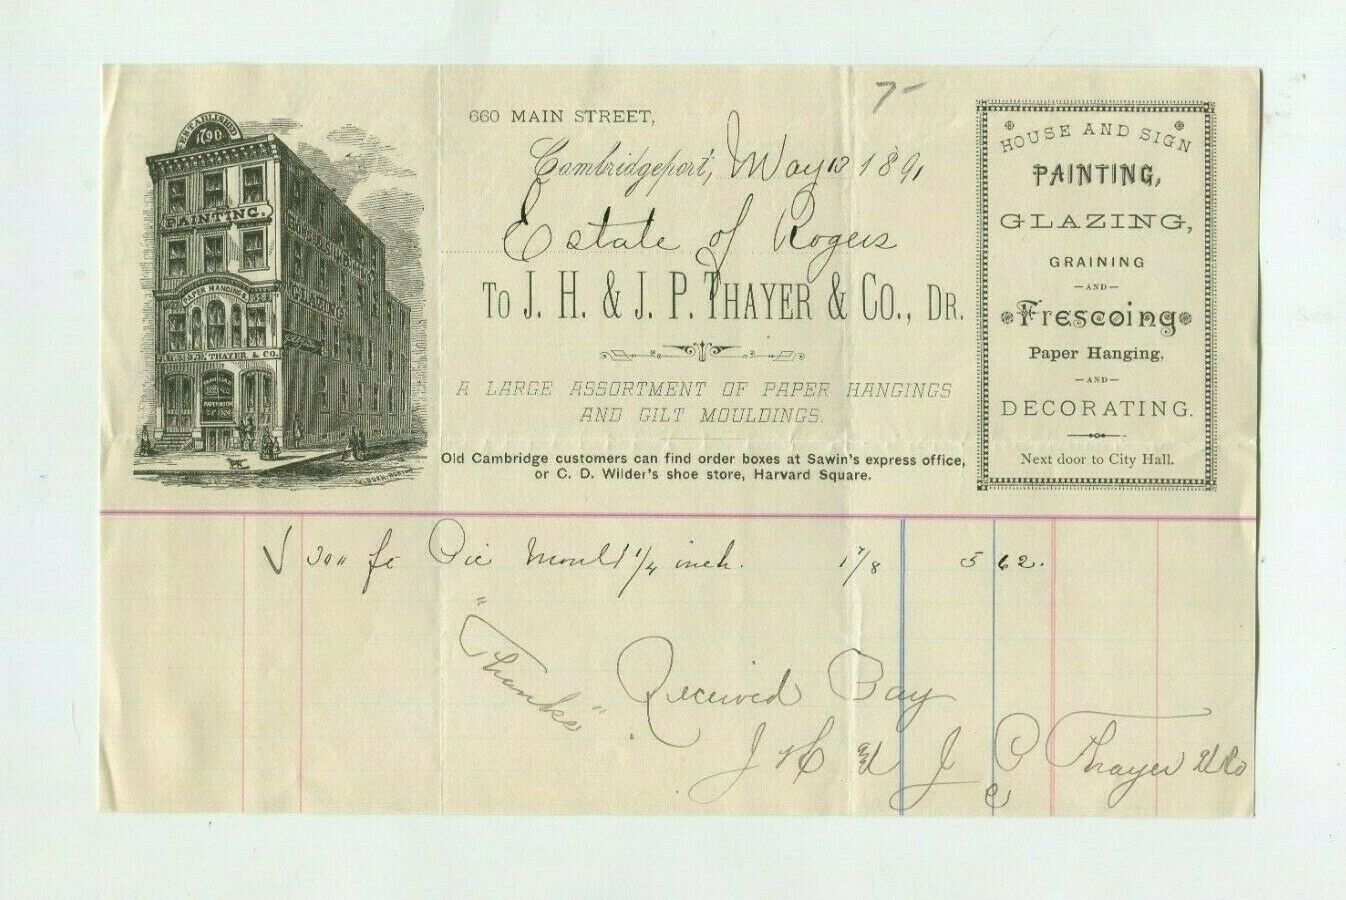 7-
660 MAIN STREET,
Cambridgeport, May 13 1891
Estate of Rogers
TO J. H. & J. P. THAYER & CO., DR.
A LARGE ASSORTMENT OF PAPER HANGINGS
AND GILT MOULDINGS.
Old Cambridge customers can find order boxes at Sawin's express office,
or C. D. Wilder's shoe store, Harvard Square.
ESTABLISHED
1790
PAINTING.
PAPER HANGINGS
GLAZING
J.H. & J.P. THAYER & CO.
HOUSE AND SIGN
PAINTING,
GLAZING,
GRAINING
—AND—
Frescoing
Paper Hanging,
—AND—
DECORATING.
Next door to City Hall.
√ 300 ft Pic Mould 1/4 inch. 1 7/8 5 62.
"Thanks"
Received Pay
J H & J P Thayer & Co